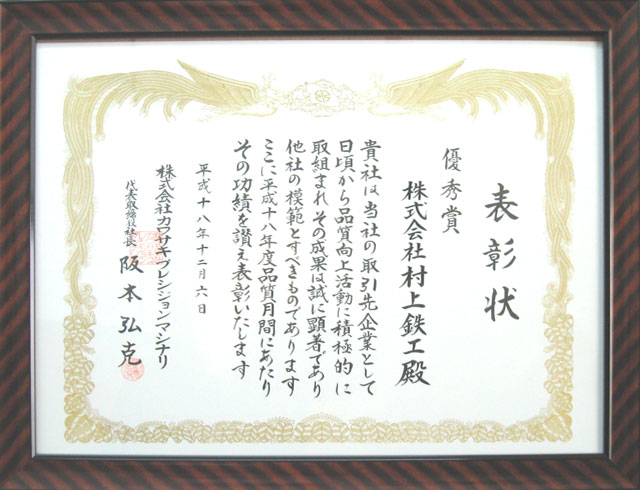 表彰状
優秀賞
株式会社村上鉄工殿
貴社は当社の取引先企業として
日頃から品質向上活動に積極的に
取組まれ その成果は誠に顕著であり
他社の模範とすべきものであります
ここに平成十八年度品質月間にあたり
その功績を讃え表彰いたします
平成十八年十二月六日
株式会社カワサキプレシジョンマシナリ
代表取締役社長 阪本弘克